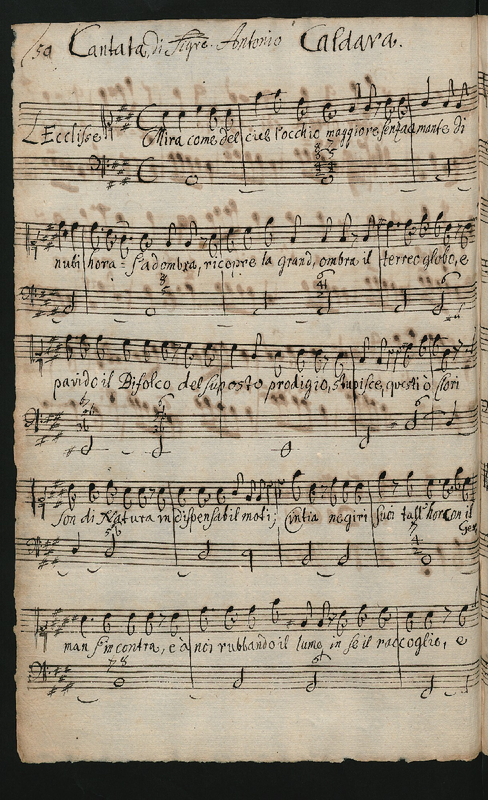 Cantata, di Sigre. Antonio Caldara.
L'Ecclisse Mira come del ciel l'occhio maggiore senza amante di
nubi hora s'adombra, ricopre la grand, ombra il terreo globo, e
pavido il Bifolco del suposto prodigio, stupisce, questi ò Clori
son di Natura indispensabil moti; Cintia ne giri suoi tall' hor con il
Ger
man s'incontra, e à noi rubbando il lume in se il raccoglie, e